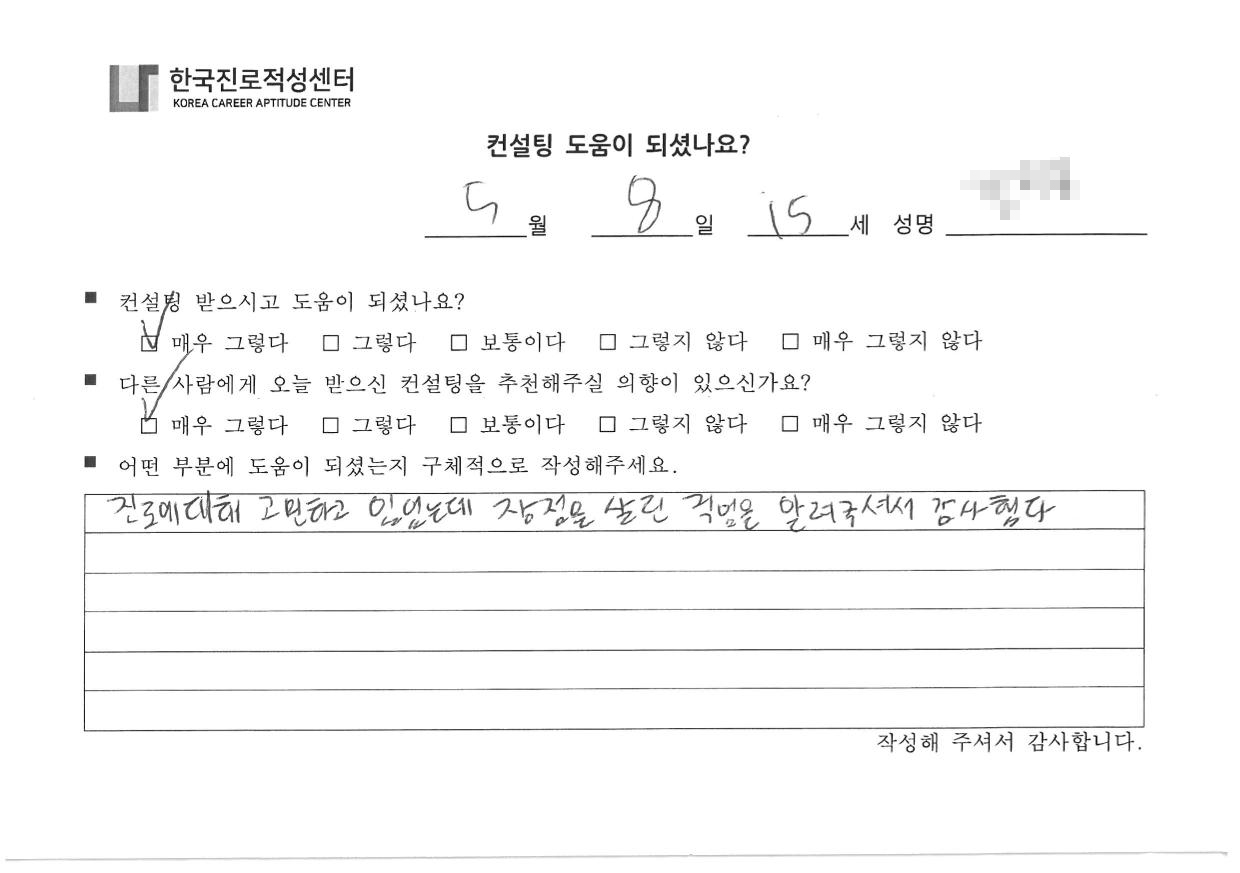 한국진로적성센터
KOREA CAREER APTITUDE CENTER
컨설팅 도움이 되셨나요?
5월 8일 15세 성명
■ 컨설팅 받으시고 도움이 되셨나요?
☑ 매우 그렇다 □ 그렇다 □ 보통이다 □ 그렇지 않다 □ 매우 그렇지 않다
■ 다른 사람에게 오늘 받으신 컨설팅을 추천해주실 의향이 있으신가요?
☑ 매우 그렇다 □ 그렇다 □ 보통이다 □ 그렇지 않다 □ 매우 그렇지 않다
■ 어떤 부분에 도움이 되셨는지 구체적으로 작성해주세요.
진로에대해 고민하고 있었는데 장점을 살린 직업을 알려주셔서 감사했다
작성해 주셔서 감사합니다.